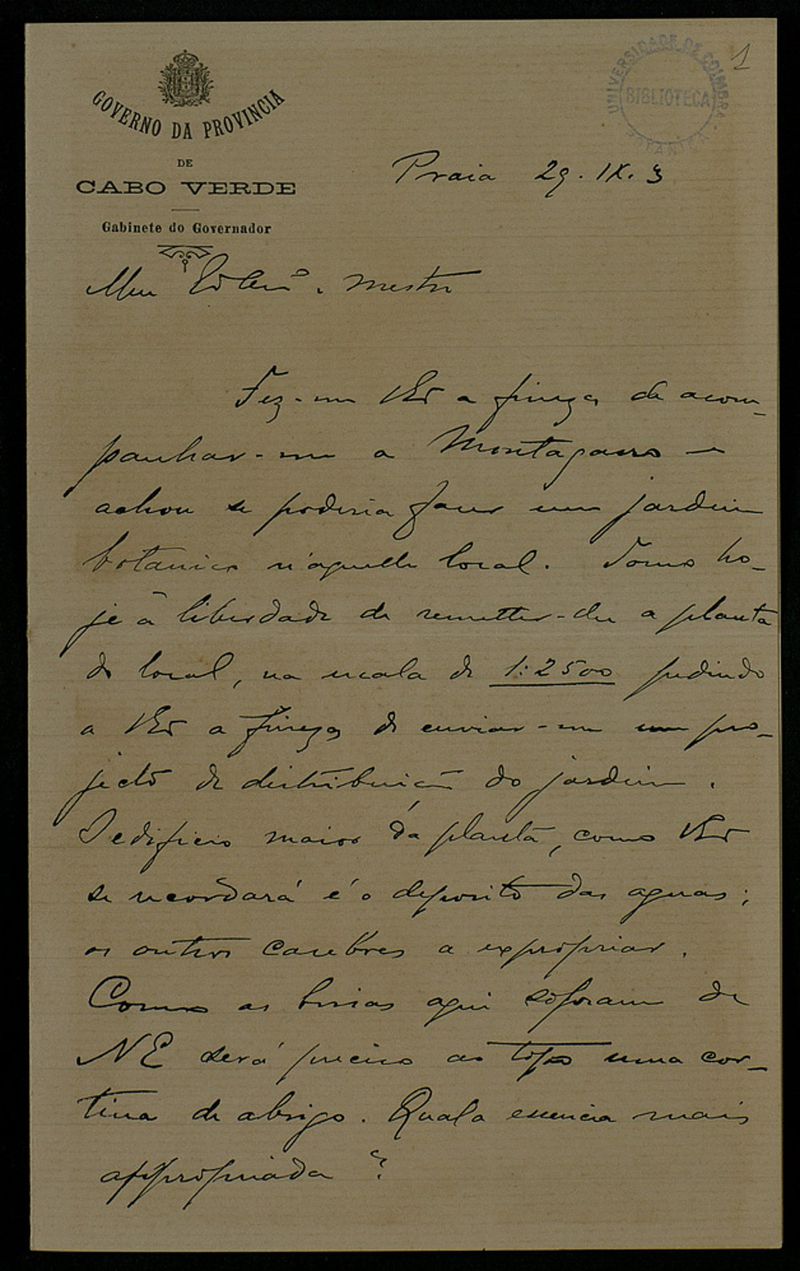 1
UNIVERSIDADE DE COIMBRA
BIBLIOTECA
BOTANICA
GOVERNO DA PROVINCIA
DE
CABO VERDE
Gabinete do Governador
Praia 29. IX. 3
Meu Mestre
Fez-me VEx a fineza de acom-
panhar-me a Montagarro e
achou se poderia fazer um jardim
botanico n'aquelle local. Tomo ho-
je a liberdade de remetter-lhe a planta
do local, na escala de 1:2500 pedindo
a VEx a fineza de enviar-me um pro-
jecto de distribuição do jardim.
O edificio maior da planta, como VEx
se recordará é o deposito das aguas;
os outros casebres a expropriar.
Como as brisas aqui sopram de
NE será preciso ao topo uma cor-
tina de abrigo. Qual a essencia mais
appropriada?